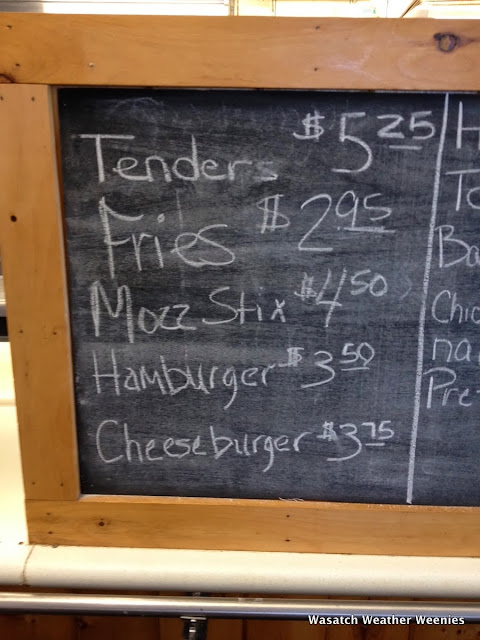 Tenders $5.25
Fries $2.95
Mozz Stix $4.50
Hamburger $3.50
Cheeseburger $3.75
Wasatch Weather Weenies